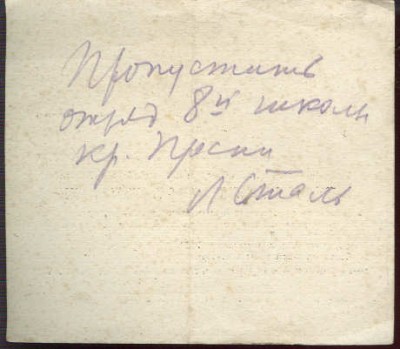 Пропустить
отряд 8й школы
кр. Пресни
Л Сталь